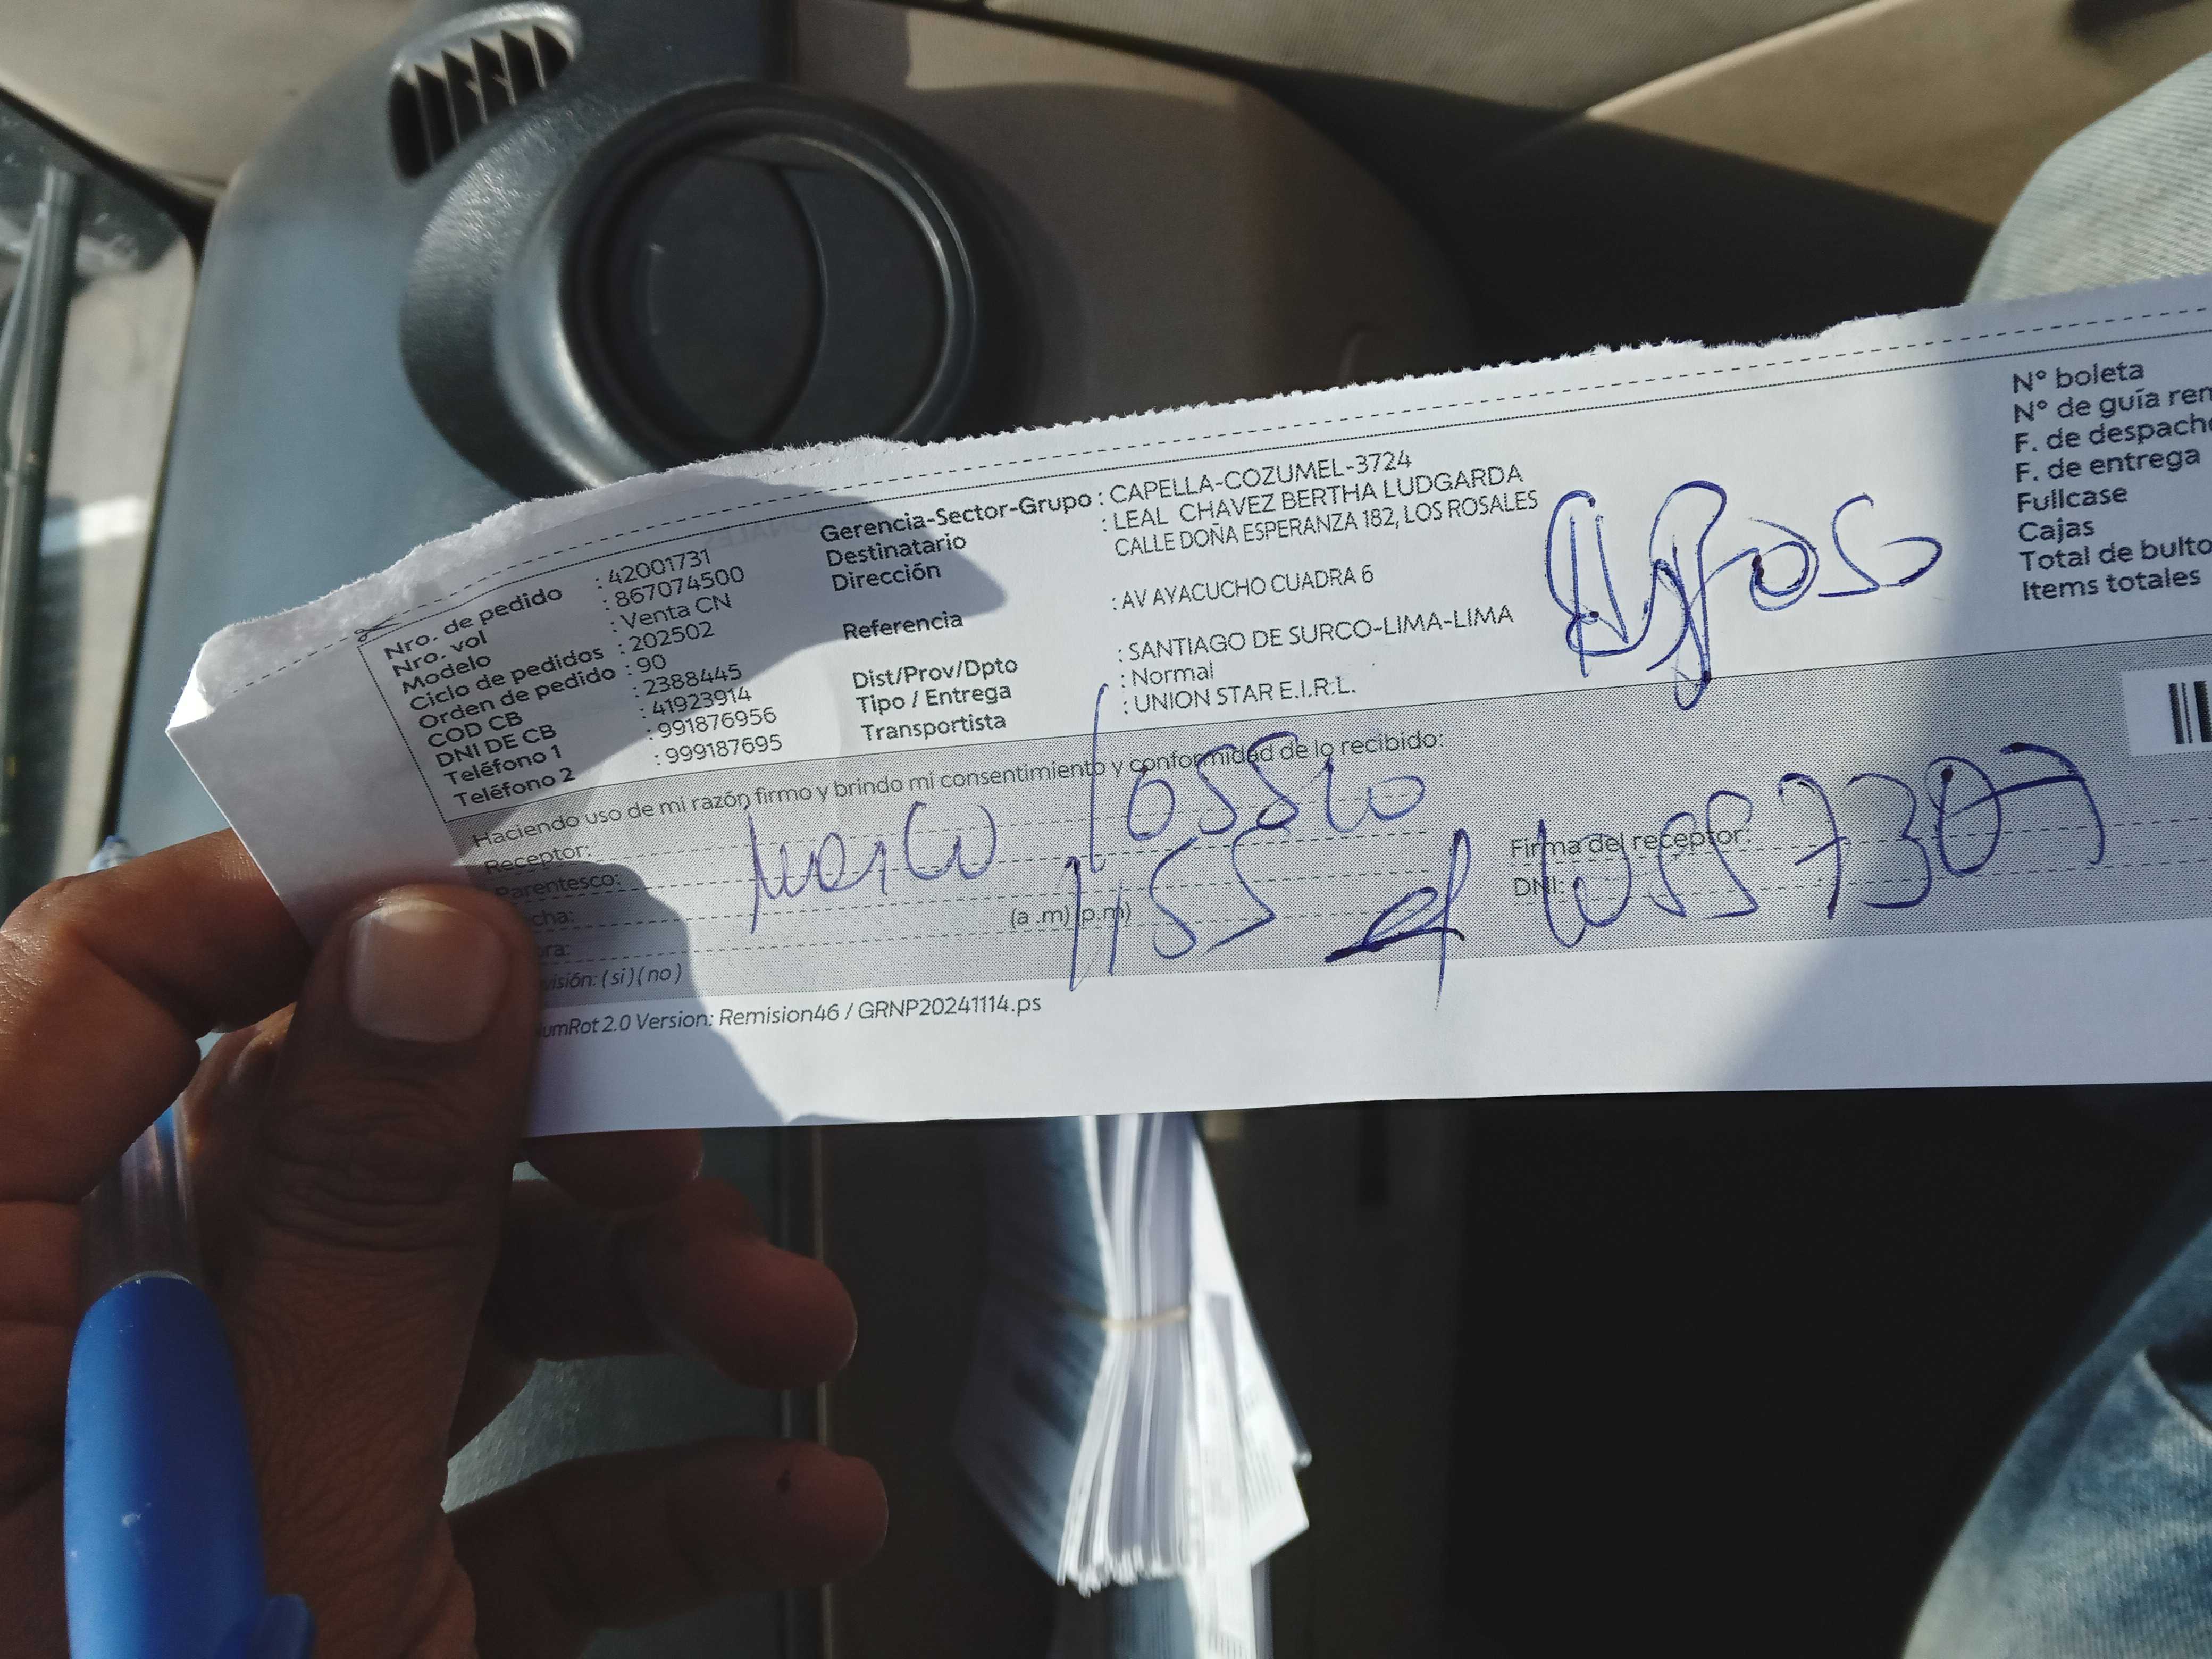 Nro. de pedido : 42001731
Nro. vol : 867074500
Modelo : Venta CN
Ciclo de pedidos : 202502
Orden de pedido : 90
COD CB : 2388445
DNI DE CB : 41923914
Teléfono 1 : 991876956
Teléfono 2 : 999187695
Gerencia-Sector-Grupo : CAPELLA-COZUMEL-3724
Destinatario : LEAL CHAVEZ BERTHA LUDGARDA
Dirección CALLE DOÑA ESPERANZA 182, LOS ROSALES
Referencia : AV AYACUCHO CUADRA 6
Dist/Prov/Dpto : SANTIAGO DE SURCO-LIMA-LIMA
Tipo / Entrega : Normal
Transportista : UNION STAR E.I.R.L.
N° boleta
N° de guía rem
F. de despacho
F. de entrega
Fullcase
Cajas
Total de bulto
Items totales
Haciendo uso de mi razón firmo y brindo mi consentimiento y conformidad de lo recibido:
Receptor:
Parentesco:
cha:
ora: (a .m) (p.m)
visión: ( si ) ( no )
Firma del receptor:
DNI:
umRot 2.0 Version: Remision46 / GRNP20241114.ps